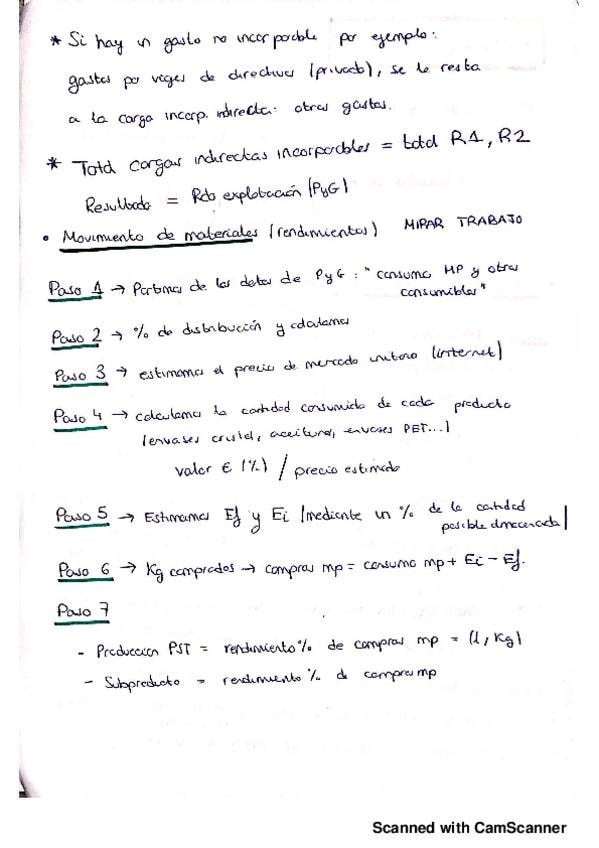 * Si hay un gasto no incorporable por ejemplo:
gastos por viajes de directivos (privado), se le resta
a la carga incorp. indirecta: otros gastos.
* Total cargas indirectas incorporables = total R1, R2
Resultado = Rdo explotación (PyG)
• Movimiento de materiales (rendimientos) MIRAR TRABAJO
Paso 1 → Partimos de los datos de PyG: "consumo MP y otros
consumibles"
Paso 2 → % de distribución y calculamos
Paso 3 → estimamos el precio de mercado unitario (internet)
Paso 4 → calculamos la cantidad consumida de cada producto
(envases cristal, aceituna, envases PET...)
valor € (%) / precio estimado
Paso 5 → Estimamos Ef y Ei (mediante un % de la cantidad
posible almacenada)
Paso 6 → Kg comprados → compras mp = consumo mp + Ei - Ef.
Paso 7
- Produccion PST = rendimiento % de compras mp = (l, Kg)
- Subproducto = rendimiento % de compras mp
Scanned with CamScanner